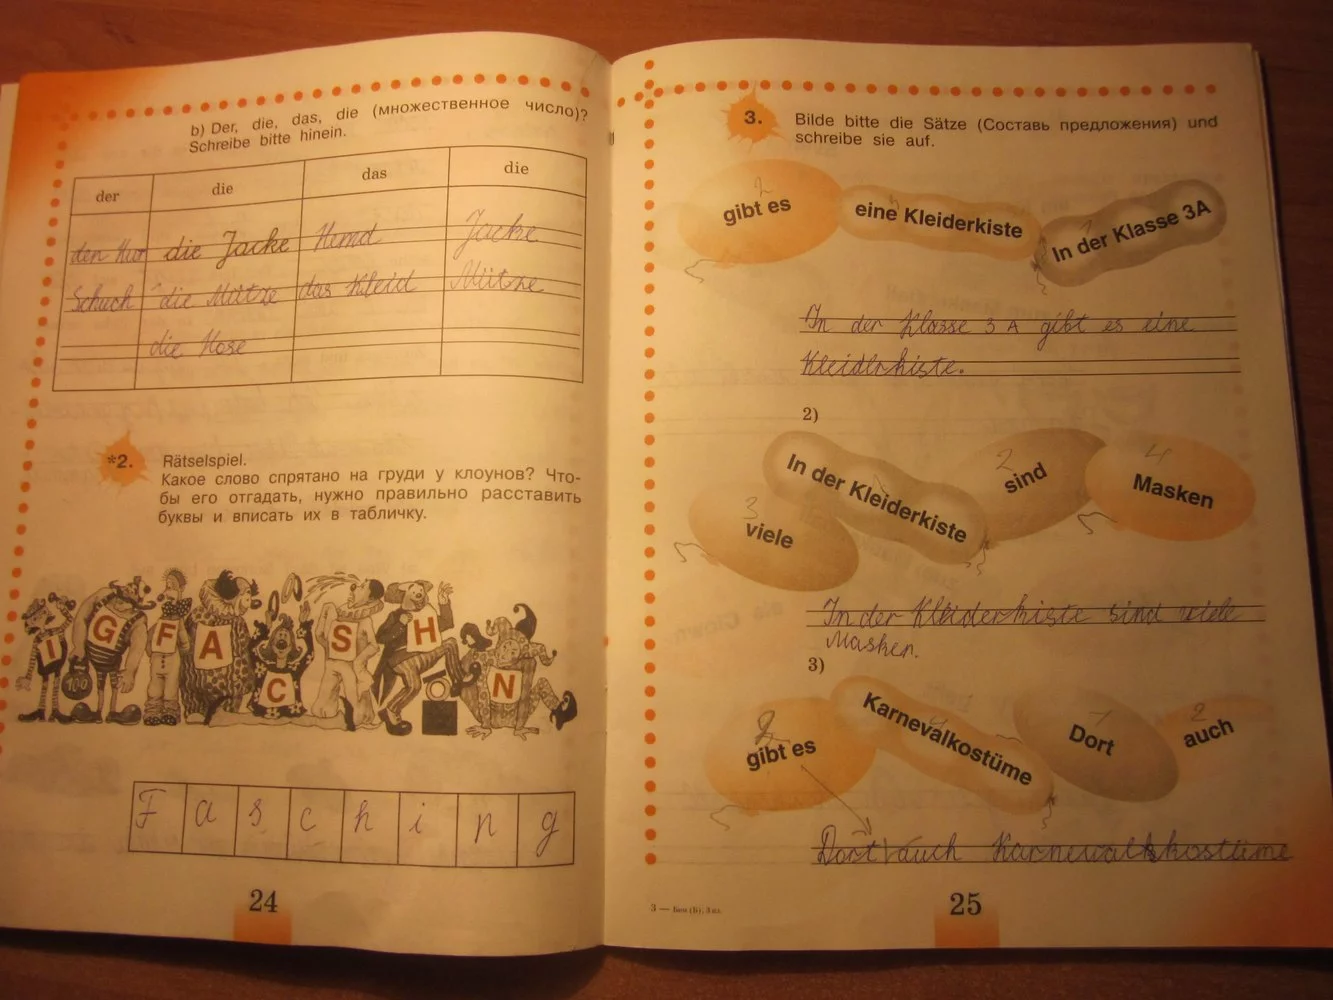 b) Der, die, das, die (множественное число)?
Schreibe bitte hinein.
der die das die
den Hur die Jacke Hemd Jacke
Schuch die Mütze das Kleid Mütze
die Hose
*2. Rätselspiel.
Какое слово спрятано на груди у клоунов? Что-
бы его отгадать, нужно правильно расставить
буквы и вписать их в табличку.
I G F A C S H N
100
F a s c h i n g
24
3. Bilde bitte die Sätze (Составь предложения) und
schreibe sie auf.
gibt es eine Kleiderkiste In der Klasse 3A
In der Klasse 3 A gibt es eine
Kleiderkiste.
2)
In der Kleiderkiste sind Masken
viele
In der Kleiderkiste sind viele
Masken.
3)
gibt es Karnevalkostüme Dort auch
Dort auch Karnewalkostüme
3 — Бим (Б), 3 кл.
25